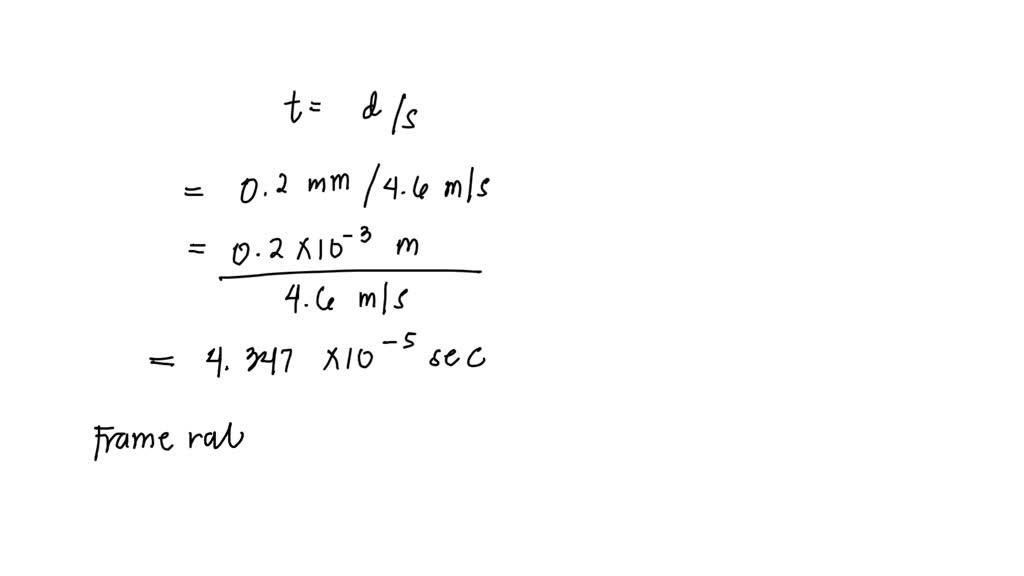 t = d/s
= 0.2 mm / 4.6 m/s
= 0.2 × 10⁻³ m
4.6 m/s
= 4.347 × 10⁻⁵ sec
Frame rat